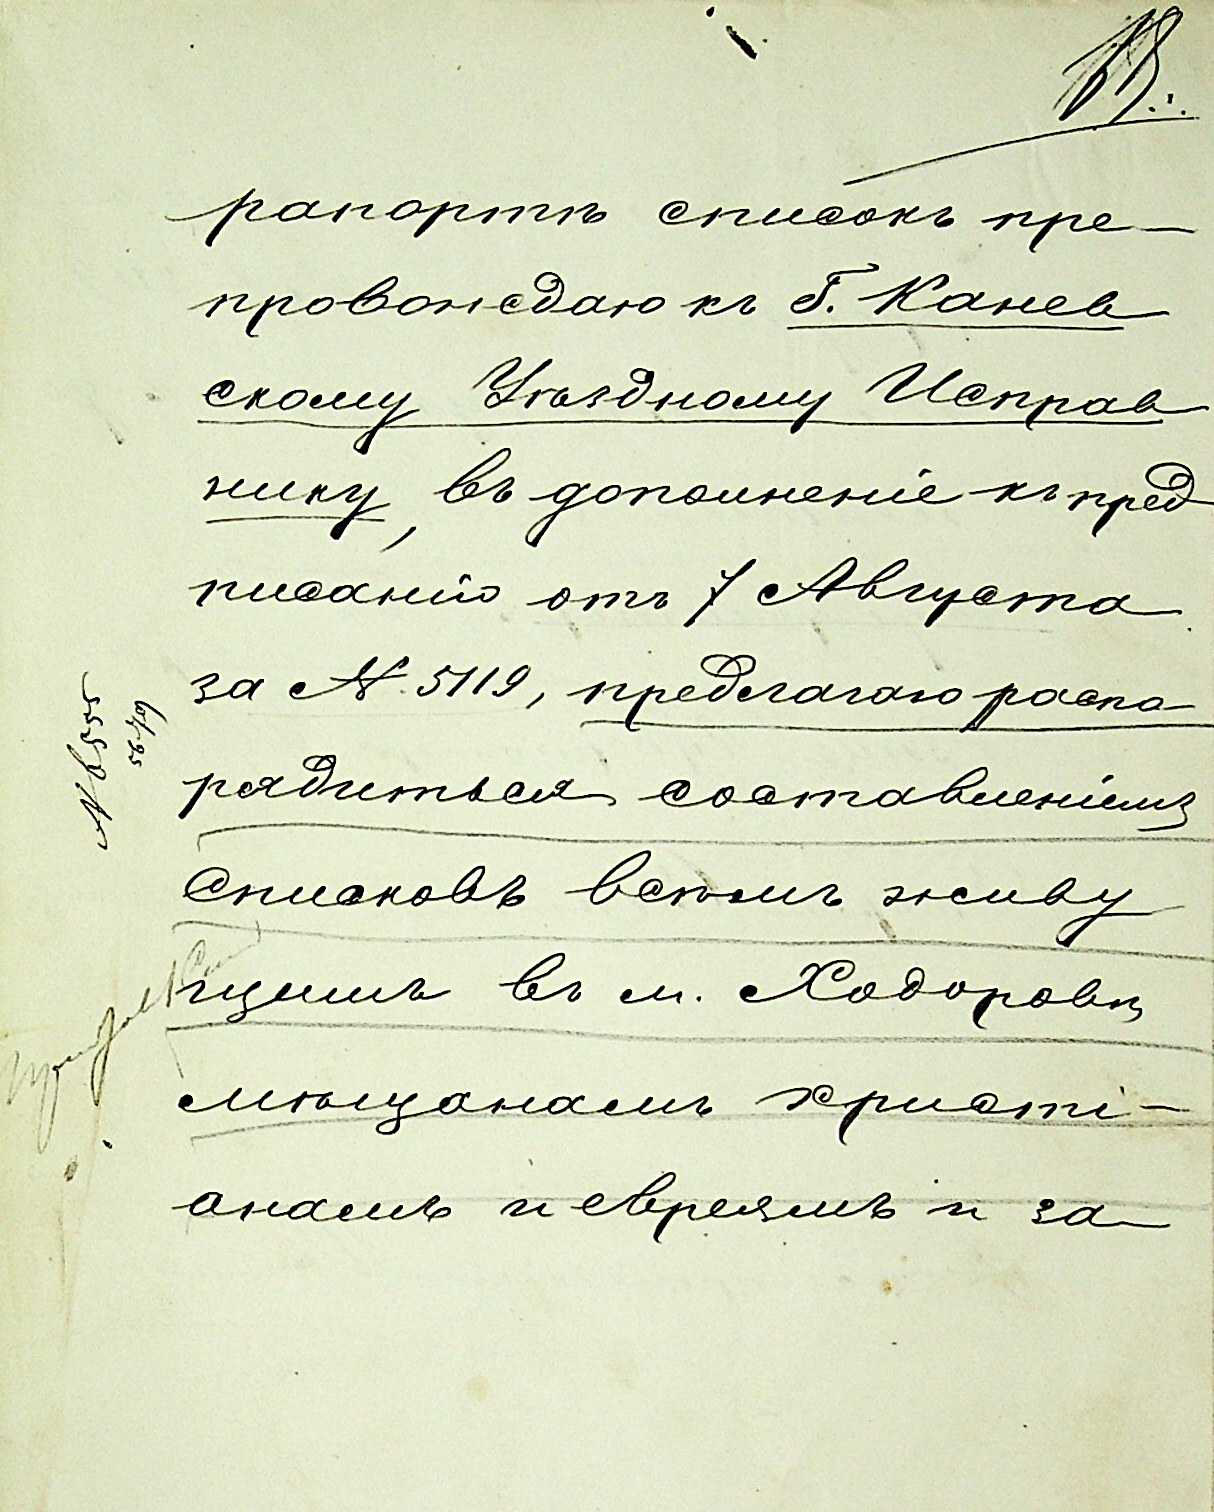 рапортѣ списокъ пре-
провождаю къ Г. Канев
скому Уѣздному Исправ
нику, въ дополненіе къ пред
писанію отъ 7 Августа
за № 5119, предлагаю распо
рядиться составленіемъ
списковъ всѣмъ живу
щимъ въ м. Ходоровѣ
мѣщанамъ христі-
анамъ и евреямъ и за
№ 6555